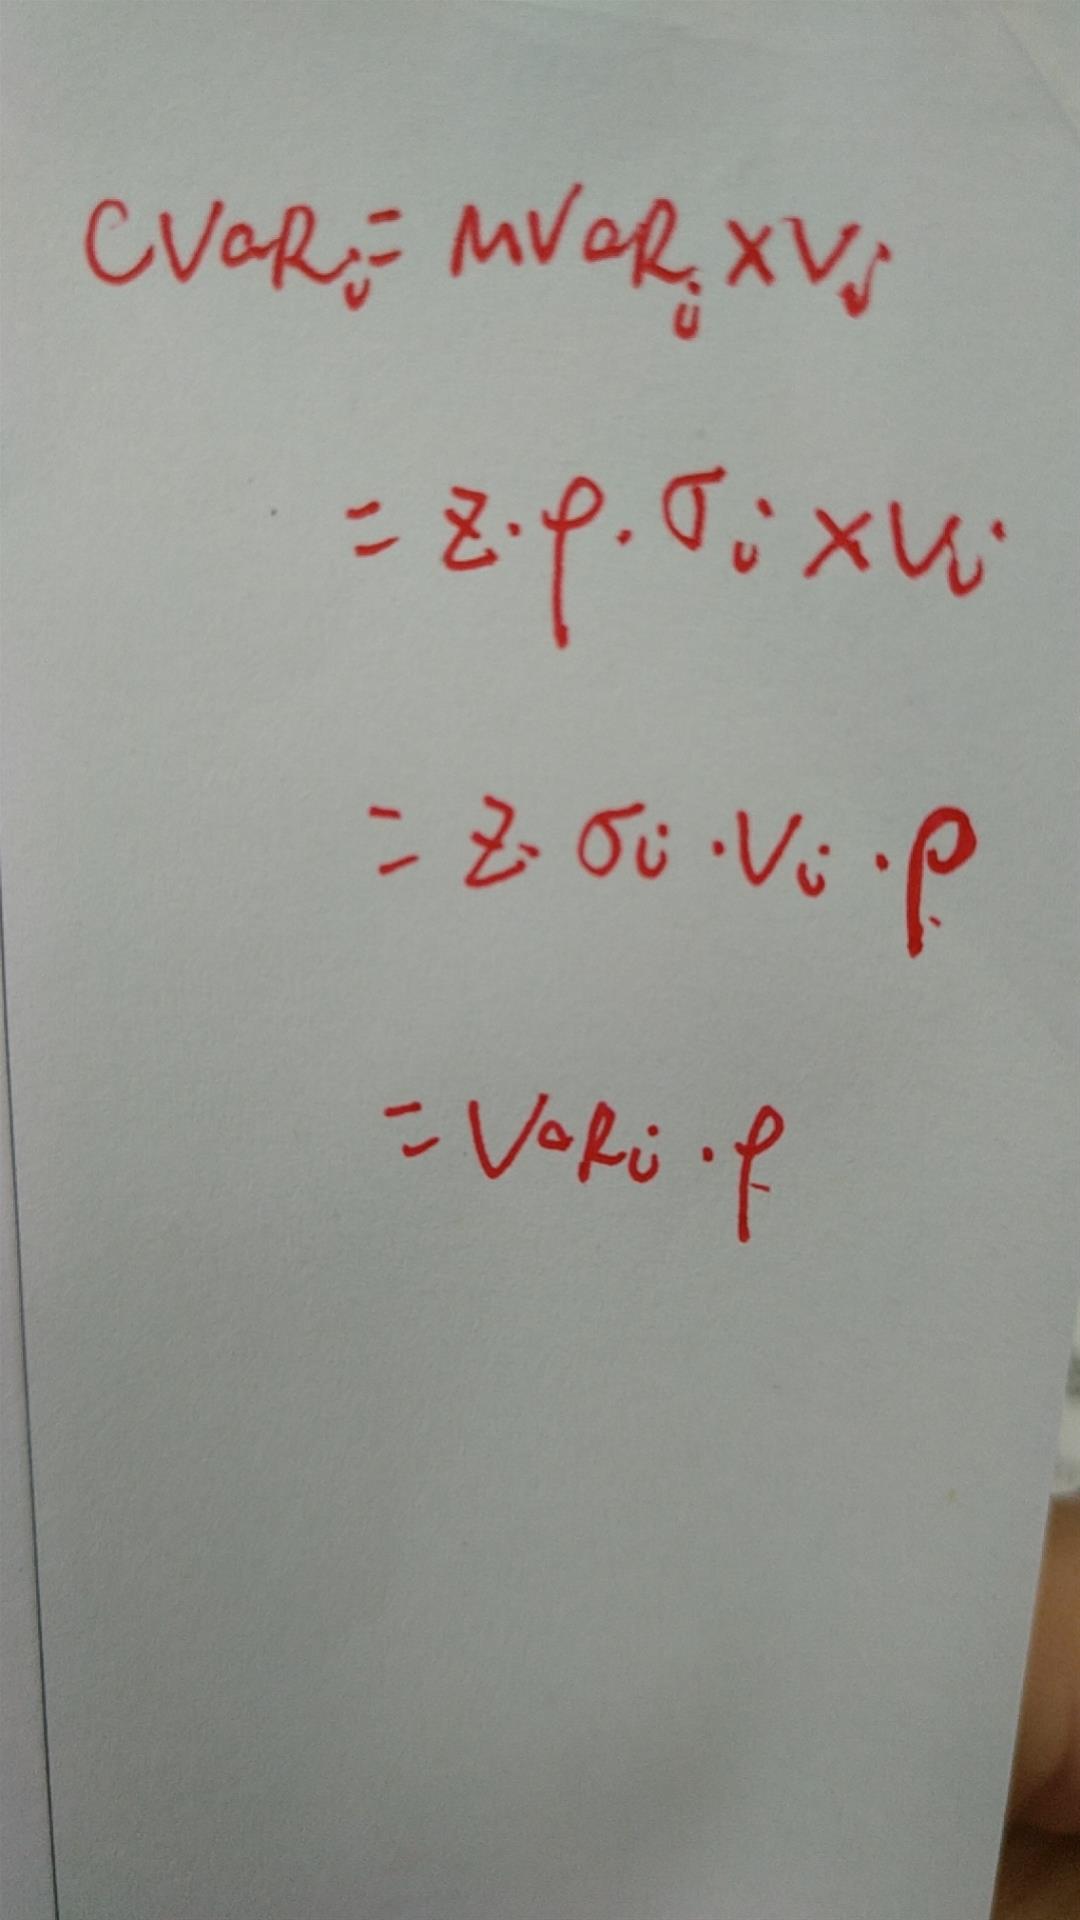 CVaRᵢ = MVaRᵢ × Vᵢ
= z · ρ · σᵢ × Vᵢ
= z · σᵢ · Vᵢ · ρ
= VaRᵢ · ρ